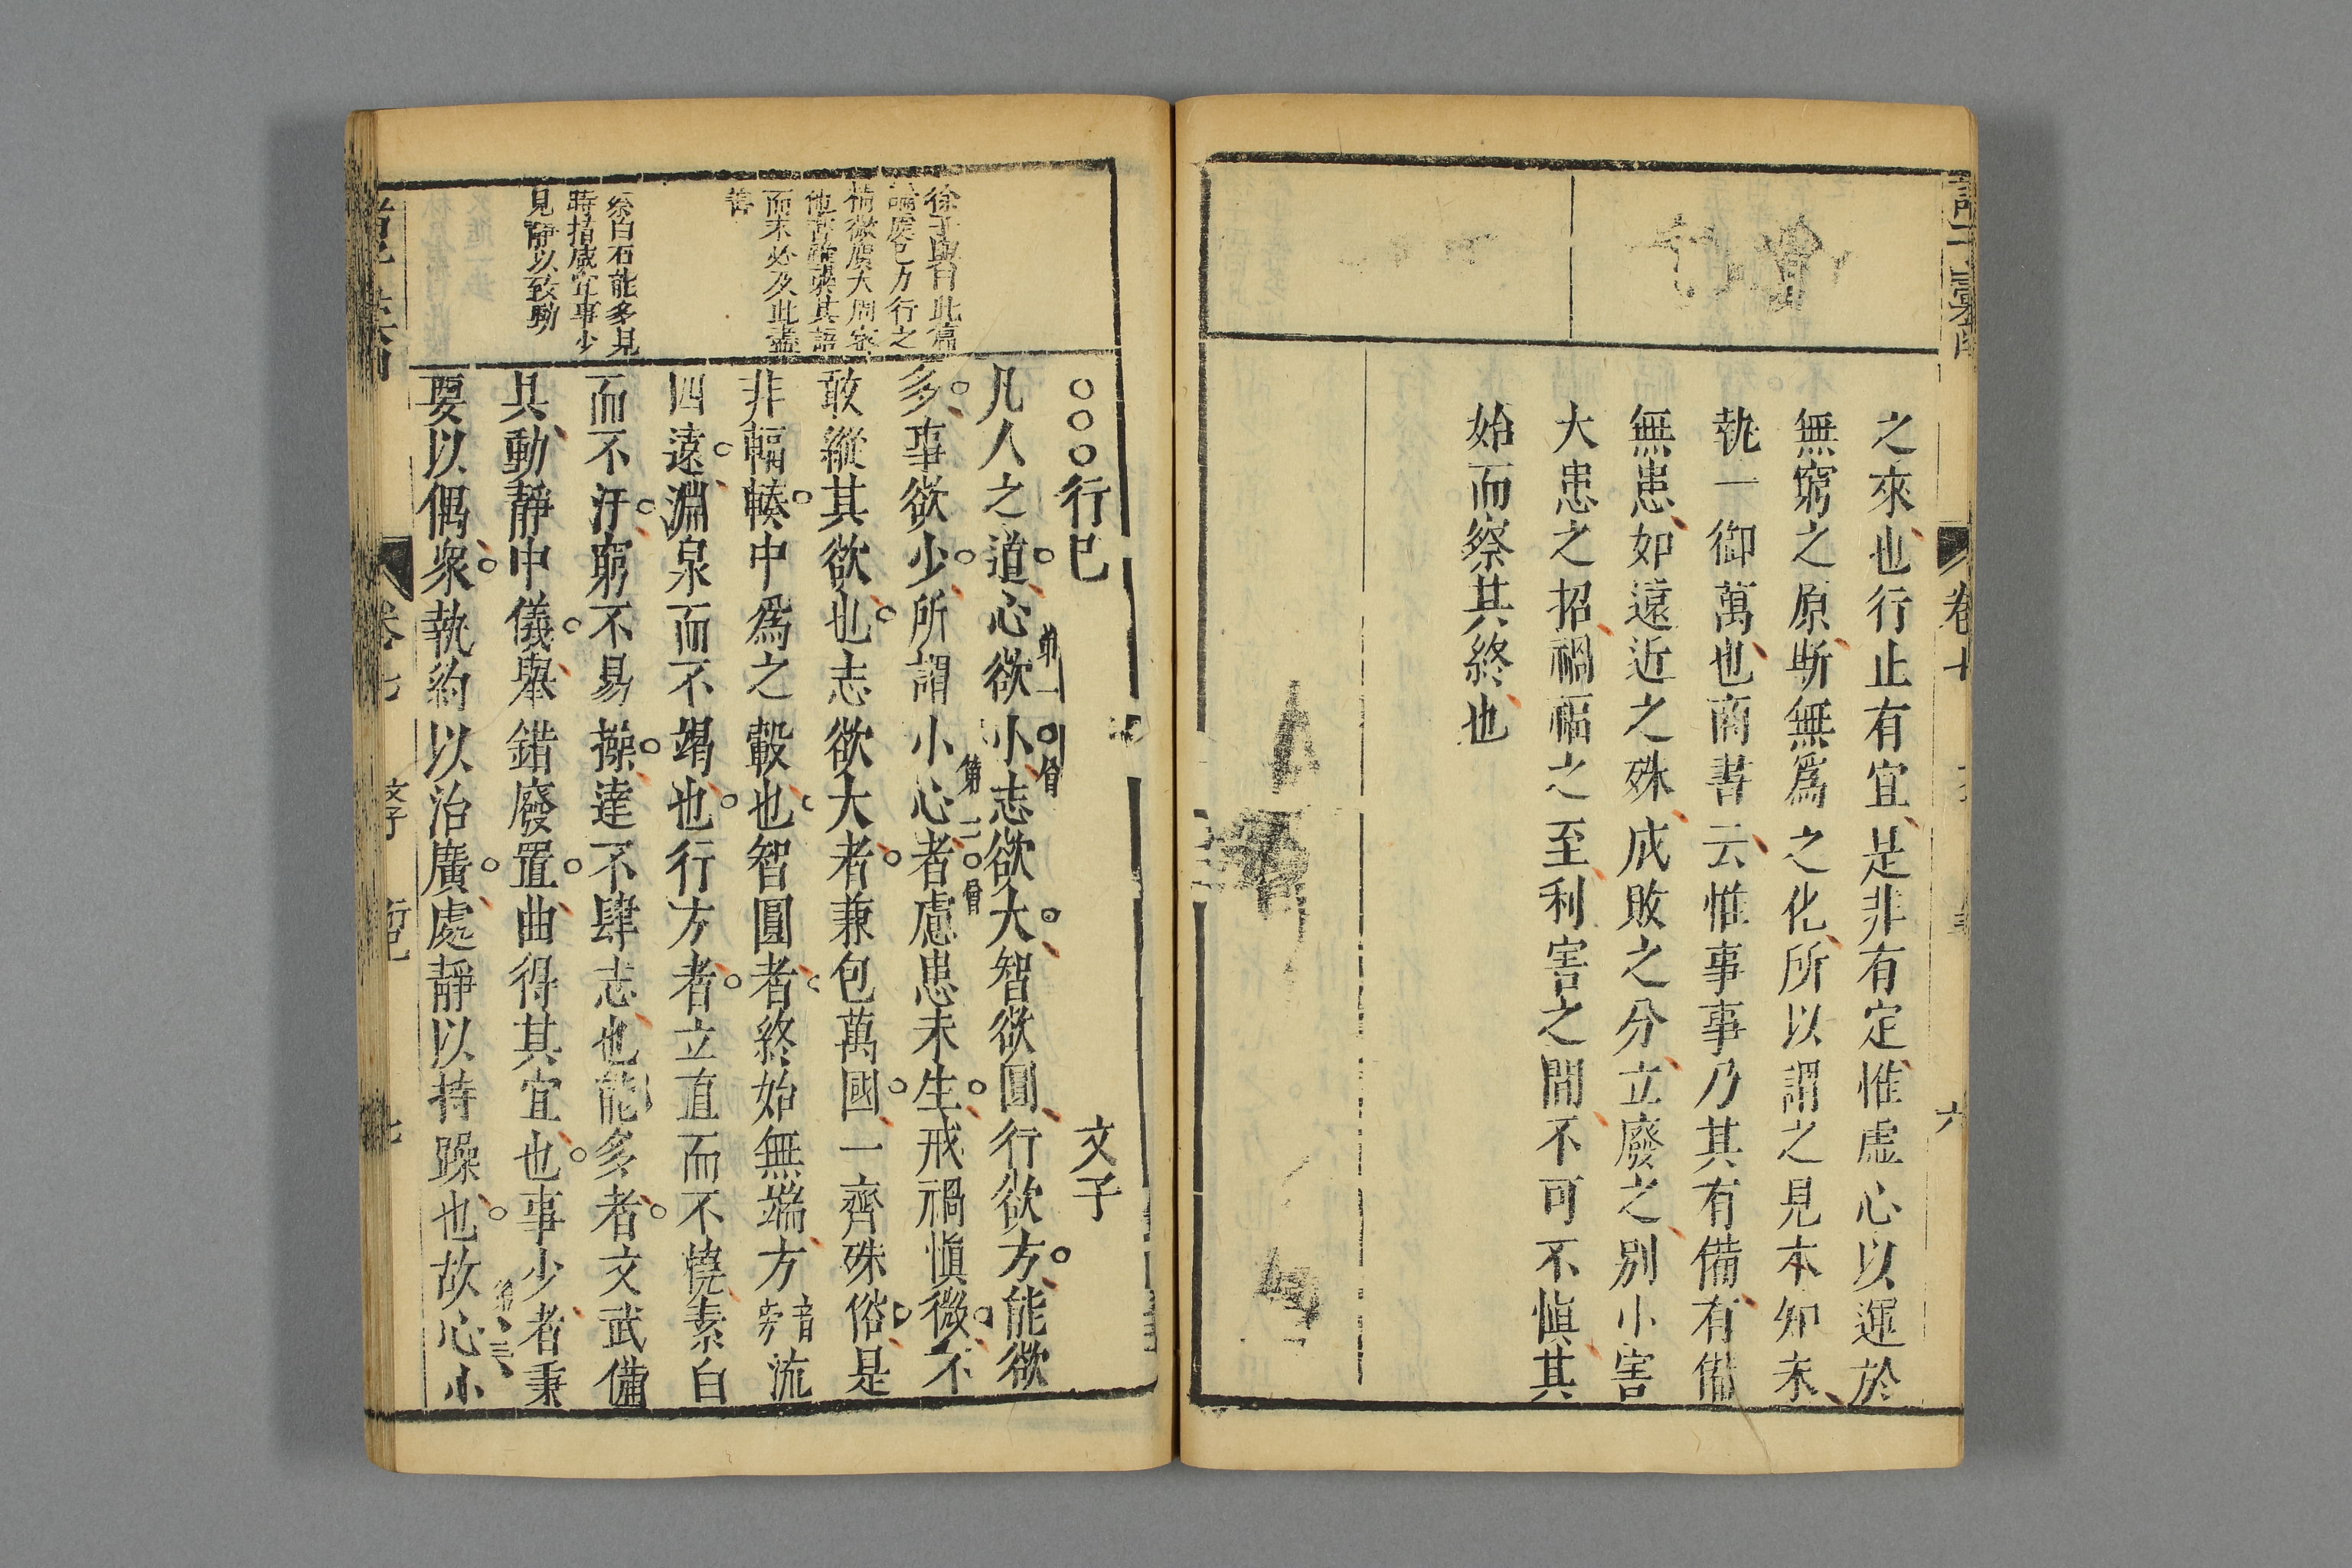 之來也行止有宜是非有定惟虛心以運於
無窮之原斷無爲之化所以謂之見本知末
執一御萬也商書云惟事事乃其有備有備
無患如遠近之殊成敗之分立廢之別小害
大患之招禍福之至利害之間不可不慎其
始而察其終也
卷七
六
徐子與曰此篇
論處已方行之
情欲廣大周密
他書雖載其語
而未必及此盡
善
徐白石能多見
時措咸宜事少
見靜以致動
○○○行已 文子
凡人之道心欲小志欲大智欲圓行欲方能欲
第一
多事欲少所謂小心者慮患未生戒禍慎微不
第二
敢縱其欲也志欲大者兼包萬國一齊殊俗是
非輻輳中爲之轂也智圓者終始無端方音旁流
四遠淵泉而不竭也行方者立直而不撓素白
而不汙窮不易操達不肆志也能多者文武備
具動靜中儀舉錯廢置曲得其宜也事少者秉
要以偶衆執約以治廣處靜以持躁也故心小
第三
卷七
文子
七